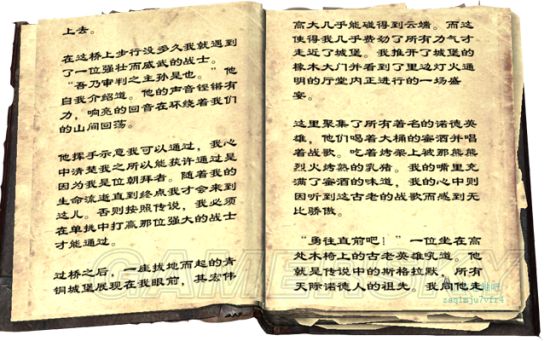 上去。
在这桥上步行没多久我就遇到
了一位强壮而威武的战士。
“吾乃审判之主孙是也。”他
自我介绍道。他的声音铿锵有
力，响亮的回音在环绕着我们
的山间回荡。
他挥手示意我可以通过，我心
中清楚我之所以能获许通过是
因为我是位朝拜者。随着我的
生命流逝直到终点我才会来到
这儿。否则按照传说，我必须
在单挑中打赢那位强大的战士
才能通过。
过桥之后，一座拔地而起的青
铜城堡展现在我眼前，其宏伟
高大几乎能碰得到云端。而这
使得我几乎费劲了所有力气才
走近了城堡。我推开了城堡的
橡木大门并看到了里边灯火通
明的厅堂内正进行的一场盛
宴。
这里聚集了所有著名的诺德英
雄，他们喝着大桶的蜜酒并唱
着战歌。吃着烤架上被那熊熊
烈火烤熟的乳猪。我的嘴里充
满了蜜酒的味道，我的心中则
因听到这古老的战歌而感到无
比骄傲。
“勇往直前吧！”一位坐在高
处木椅上的古老英雄吼道。他
就是传说中的斯格拉默，所有
天际诺德人的祖先。我向他走
GAMERSKY
zaq1mju7vfr4